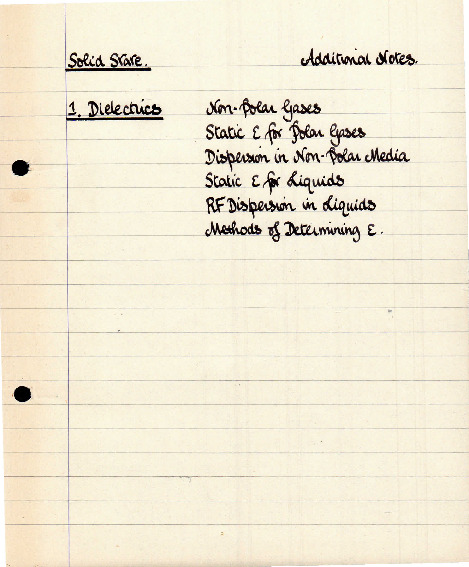 Solid State. Additional Notes.
1. Dielectrics Non-Polar Gases
Static ε for Polar Gases
Dispersion in Non-Polar Media
Static ε for Liquids
RF Dispersion in Liquids
Methods of Determining ε.